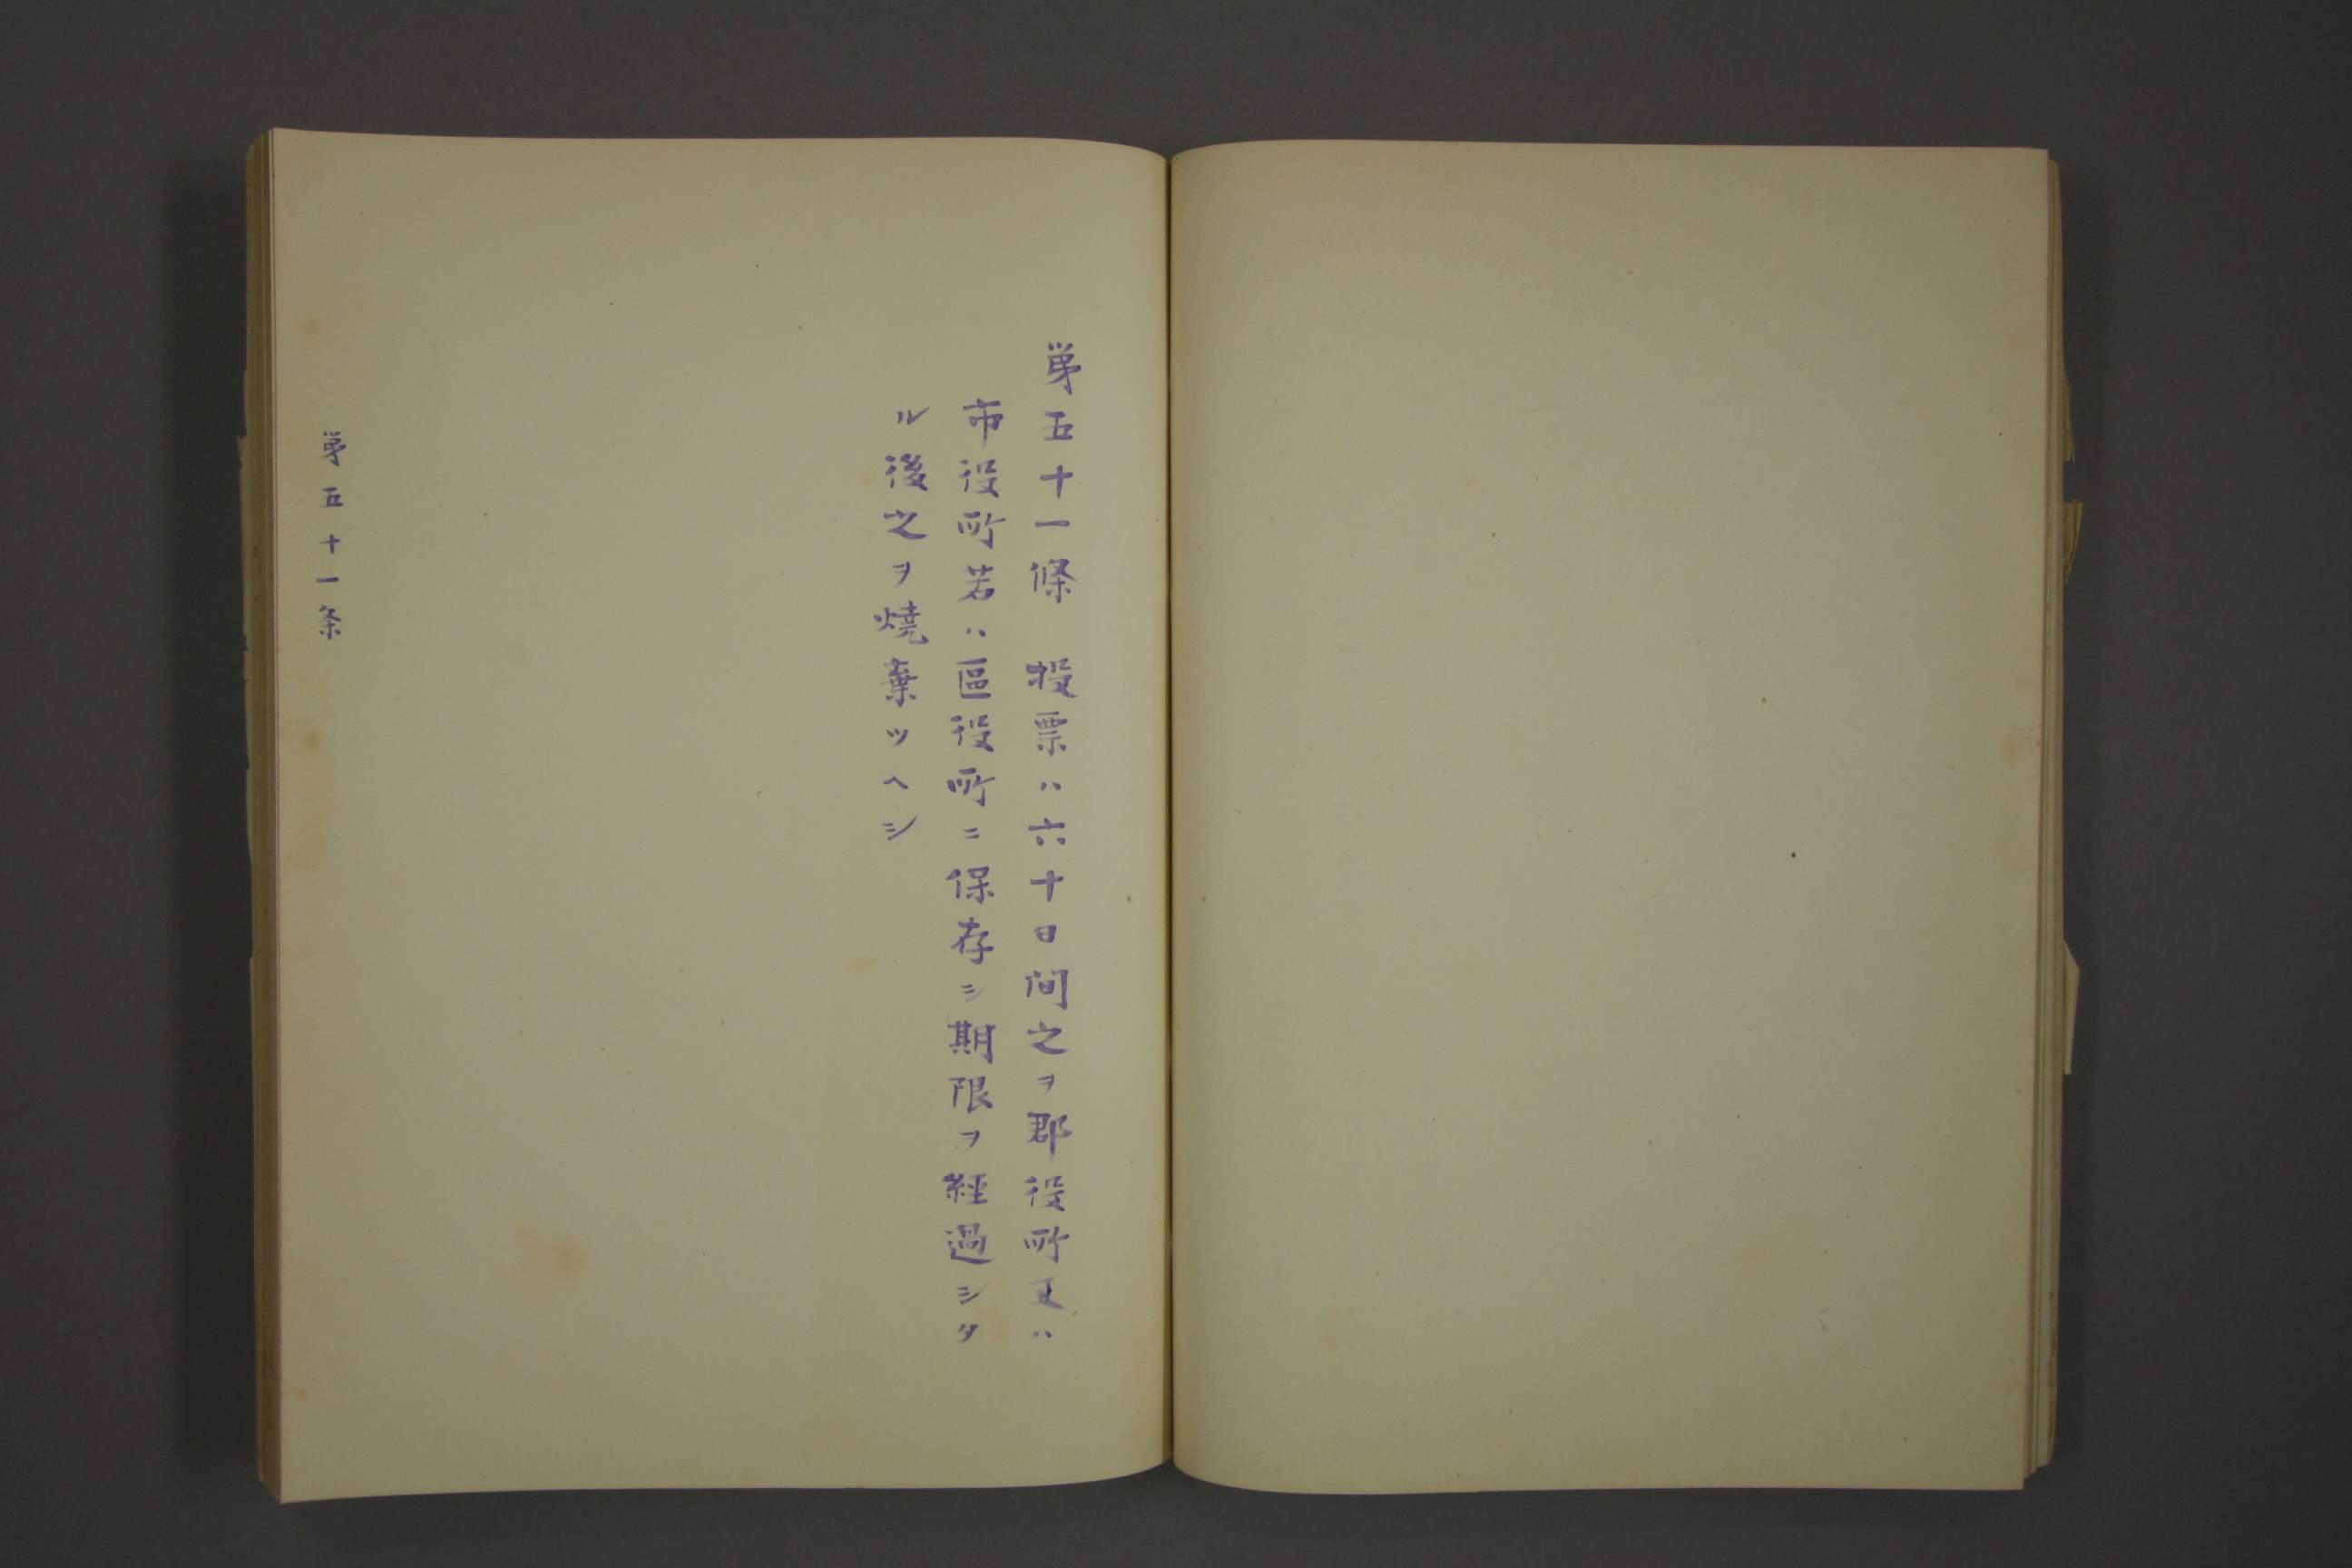 第五十一條　投票ハ六十日間之ヲ郡役所又ハ
市役所若ハ區役所ニ保存シ期限ヲ経過シタ
ル後之ヲ燒棄ツヘシ
第五十一条